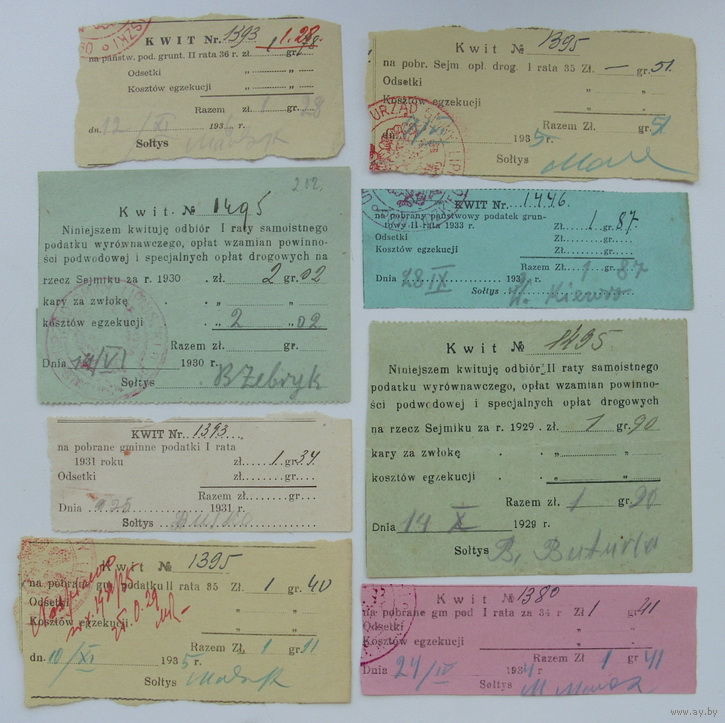 KWIT Nr. 1393 1.28
na państw. pod. grunt. II rata 36 r. zł. gr.
Odsetki „ „
Kosztów egzekucji „ „
Razem zł. 1 gr. 28
dn. 12/XI 193 r.
Sołtys
Kwit № 1395
na pobr. Sejm. opł. drog I rata 35 Zł. — gr. 51.
Odsetki „ „
Kosztów egzekucji „ „
Razem Zł. gr. 51
dn. 1935 r.
Sołtys
212.
Kwit № 1495
Niniejszem kwituję odbiór I raty samoistnego
podatku wyrównawczego, opłat wzamian powinno-
ści podwodowej i specjalnych opłat drogowych na
rzecz Sejmiku za r. 1930 . zł. 2 gr. 02
kary za zwłokę . . „ „
kosztów egzekucji . . „ 2 „ 02
Razem zł. gr.
Dnia /VI 1930 r.
Sołtys B Żebryk
KWIT Nr. 1446.
na pobrany państwowy podatek grun-
towy II rata 1933 r. Zł. 1. gr. 87.
Odsetki Zł. „
Kosztów egzekucji „ „
Razem Zł. 1 gr. 87
Dnia 28 IX 193 r.
Sołtys
Kwit № 1495
Niniejszem kwituję odbiór II raty samoistnego
podatku wyrównawczego, opłat wzamian powinno-
ści podwodowej i specjalnych opłat drogowych
na rzecz Sejmiku za r. 1929 . zł. 1 gr. 90
kary za zwłokę . . „ „
kosztów egzekucji . . „ „
Razem zł. 1 gr. 90
Dnia 14 X 1929 r.
Sołtys B. Buturla
KWIT Nr. 1393
na pobrane gminne podatki I rata
1931 roku zł. 1. gr. 34.
Odsetki zł. „
Razem zł. gr.
Dnia 1931 r.
Sołtys
Kwit № 1395
na pobrane gm. podatku II rata 35 Zł. 1 gr. 40
Odsetki „ „
Kosztów egzekucji „ „
Razem Zł. 1 gr.
dn. 10/XI 1935 r.
Sołtys
Kwit № 1380
na pobrane gm pod I rata za 34 r Zł 1 gr 41
Odsetki „ „
Kosztów egzekucji „ „
Razem Zł 1 gr 41
Dnia 24/IV 1934 r
Sołtys
www.ay.by